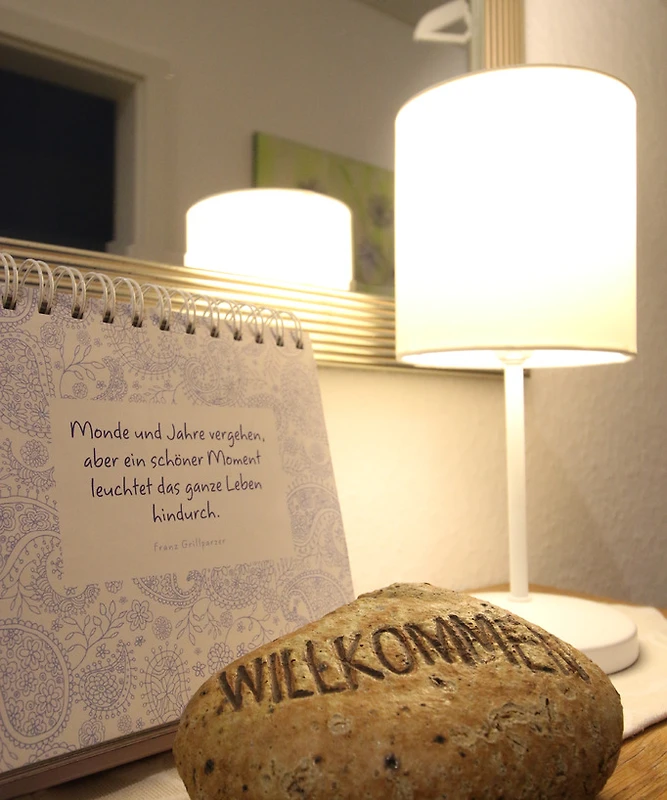 Monde und Jahre vergehen,
aber ein schöner Moment
leuchtet das ganze Leben
hindurch.
Franz Grillparzer
WILLKOMMEN